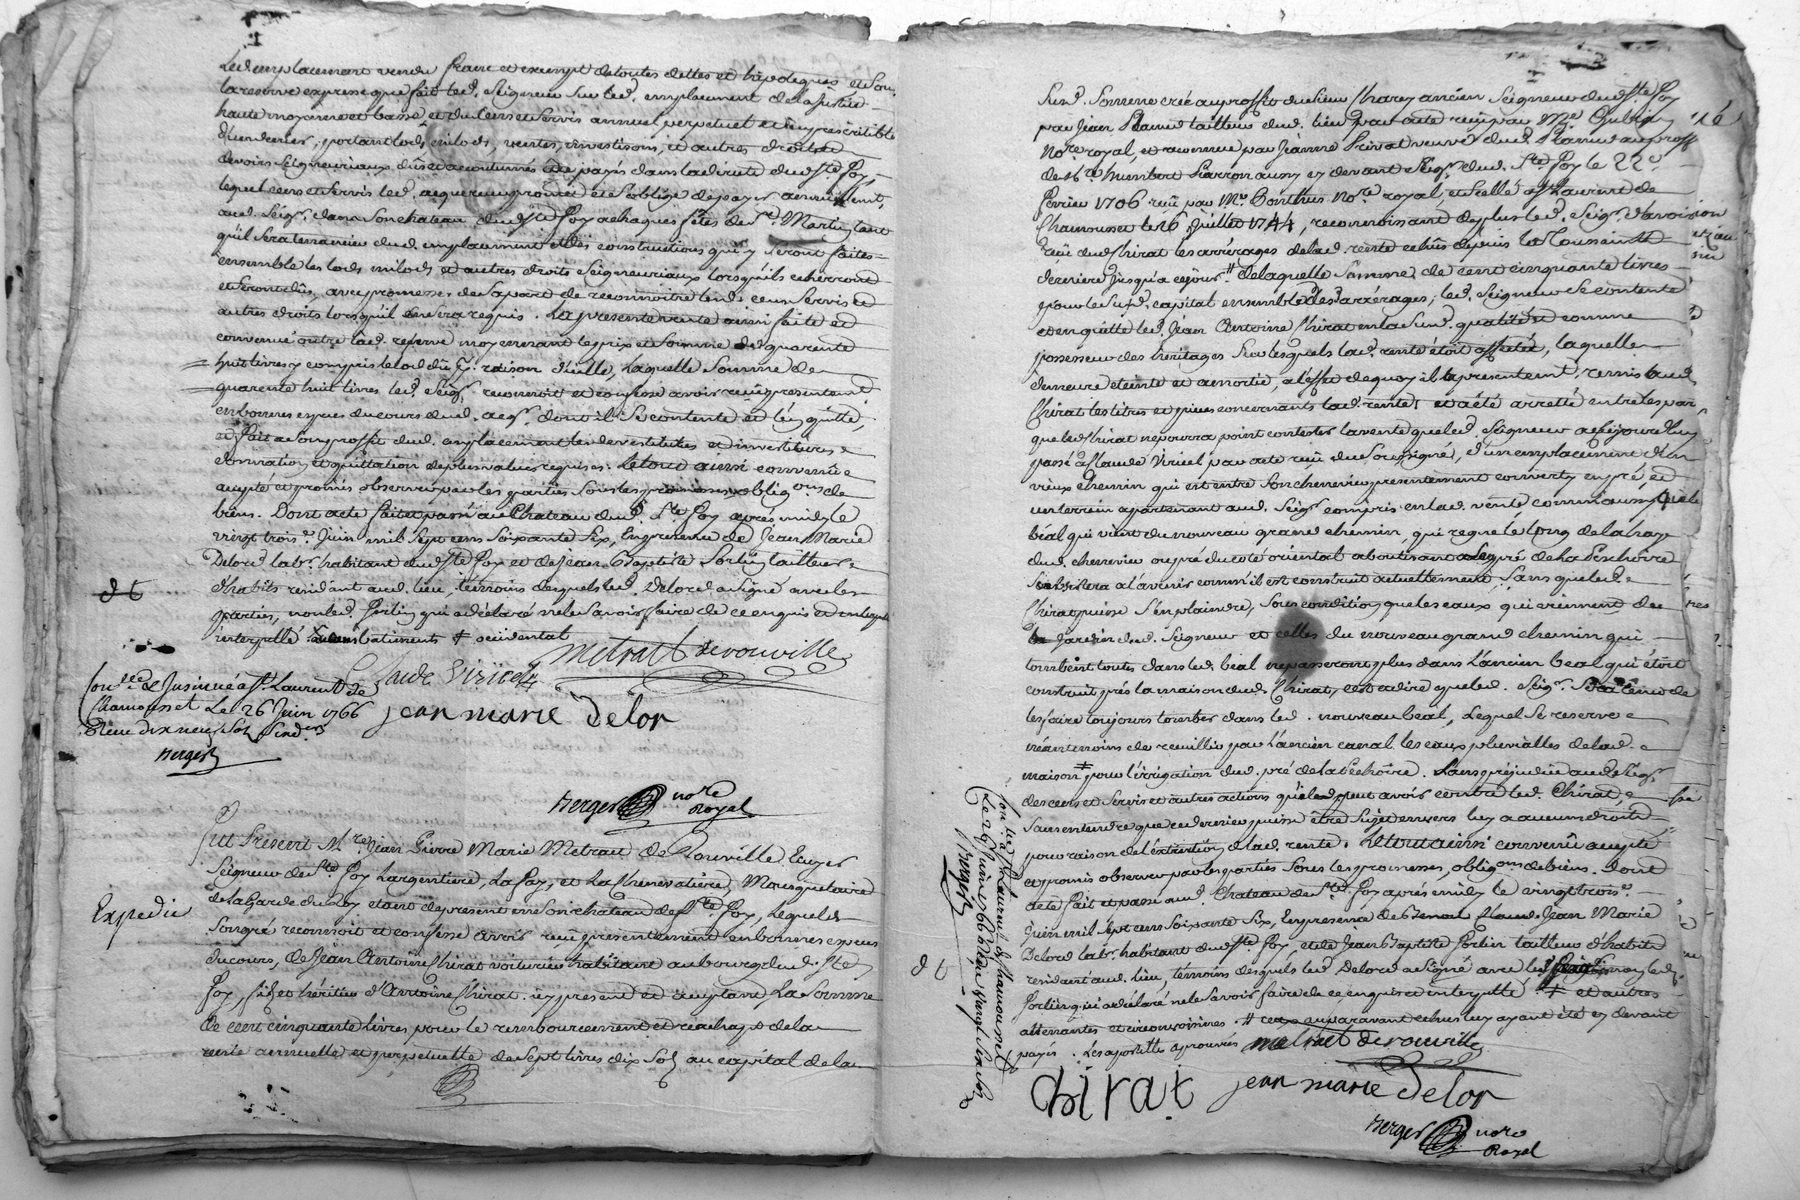 Led. emplacement vendu franc et exempt de toutes dettes et hipoteques et sous
la reserve expresse que fait led. Seigneur sur led. emplacement de la justice
haute moyenne et basse et du cens et servis annuel perpetuel et imprescriptible
d'un denier, portant lods, milods, ventes, investisons, et autres droits et
devoirs Seigneuriaux dûs et acoutumés être payés dans la directe dud. Ste Foy,
lequel cens et servis led. acquereur promet et s'oblige de payer annuellement
aud. Seigr. dans son chateau dud. Ste Foy a chaques fêtes de St. Martin tant
qu'il sera tenancier dud. emplacement et des constructions qui y seront faites
ensemble les lods milods et autres droits Seigneuriaux lorsqu'ils echerront
et seront dûs, avec promesse de sa part de reconnoitre lesd. cens servis et
autres droits lorsqu'il en sera requis. La presente vente ainsi faite et
convenue outre lad. reserve moyennant le prix et somme de quarente
huit livres y compris le lod dû à raison d'icelle, laquelle somme de
quarente huit livres led. Seigr. reconnoit et confesse avoir reçûe presentement
en bonnes especes du cours dud. acqr. dont il se contente et l'en quitte,
et fait a son proffit dud. emplacement les devestitures et investitures
donnation et quittation de plus values requises. Le tout ainsi convenu
accepté et promis observer par les parties sous les promesses obligons de
biens. Dont acte fait et passé au Chateau dud. Ste Foy après midy le
vingt trois. Juin mil sept cens soixante six, En presence de Jean Marie
Delord labr. habitant dud. Ste Foy et de Jean Baptiste Fortin tailleur
d'habits residant aud. lieu, temoins desquels led. Delord a signé avec les
parties, non led. Fortin qui a déclaré ne le savoir faire de ce enquis et interpellé
interpellé batiments ‡ occidental
metratt derouville
Claude Viricel
jean marie delor
Conllé & Insinué a St. Laurent de
Chamousset Le 26 Juin 1766
Reçu dix neuf sols
Berger
Berger nore
Royal
Fut Present Mre. Jean Pierre Marie Metrat de Rouville Ecuyer
Seigneur de Ste Foy Largentiere, La Fay, et La Chenevatiere Mousquetaire
de la Garde du Roy etant de present en son chateau de Ste. Foy, lequel de
Expedié
son gré reconnoit et confesse avoir reçu presentement en bonnes especes
du cours, de Jean Antoine Chirat voiturier habitant au bourg dud. Ste
Foy, fils et héritier d'Antoine Chirat, icy present et acceptant, La somme
de cent cinquante livres pour le remboursement et rachapt de la
rente annuelle et perpetuelle de sept livres dix sols au capital de la
susd. Somme crée au proffit du sieur Charezy ancien Seigneur dud. Ste Foy
par Jean tailleur dud. lieu par acte reçu par Me
Nore royal, et reconnue par Jeanne Privat veuve dud. au proffit
de Mre. humbert Pierron aussy cy devant Seigr. dud. Ste Foy le 22e
Fevrier 1706 reçu par Me. Nore royal, et scellé a St Laurent de
Chamousset le 16 Juillet 1744, reconnoissant de plus led. Seigr. d'avoir
reçû dud. Chirat les arrérages de lad. rente echûs depuis la Toussaint
derniere jusqu'à cejour ‡ de laquelle somme de cent cinquante livres
pour le susd. capital ensemble desd. arrérages, led. Seigneur se contente
et en quitte led. Jean Antoine Chirat en la susd. qualité et comme
possesseur des heritages sur lesquels lad. rente étoit affectée, laquelle
demeure eteinte et amortie, a l'effet de quoy il a presentement remis aud.
Chirat les titres et pieces concernants lad. rente, et a été arretté entre les par
que led. Chirat ne pourra point contester la vente que led. Seigneur a cejourd'huy
passé a Claude Viricel par acte reçû du soussigné, d'un emplacement d'un
vieux chemin qui est entre son chenevier presentement converty en pré, et
un terrein apartenant aud. Seigr. compris en lad. vente comm'aussy que le
béal qui vient du nouveau grand chemin, qui regne le long de la haye
dud. chenevier ou pré du coté oriental aboutissant au pré de la Pechoire
subsistera a l'avenir comm'il est construit actuellement, sans que led.
Chirat puisse s'en plaindre, sous condition que les eaux qui viennent de
jardin dud. Seigneur et celles du nouveau grand chemin qui
tombent toutes dans led. béal ne passeront plus dans l'ancien béal qui étoit
construit près la maison dud. Chirat, c'est a dire que led. Seigr. sera tenu de
les faire toujours tomber dans led. nouveau béal, Lequel se reserve
néantmoins de receuillir par l'ancien canal les eaux pluvialles de lad.
maison ‡ pour l'irrigation dud. pré de la Pechoire. Sans préjudice aud. Seigr.
des cens et servis et autres actions qu'il peut avoir contre led. Chirat,
sans entendre que ce dernier puisse être sujet envers luy a aucun droit
pour raison de l'extinction de lad. rente. Le tout ainsi convenû accepté
et promis observer par les parties sous les promesses, obligons de biens. Dont
acte fait et passé aud. Chateau de Ste. Foy après midy le vingt trois
Juin mil sept cens soixante six, En presence de Jean Marie
Delord labr. habitant dud. Ste Foy, et de Jean Baptiste Fortin tailleur d'habits
resident aud. lieu, témoins desquels led. Delord a signé avec les parties non led.
Fortin qui a déclaré ne le savoir faire de ce enquis et interpellé. ‡ et autres
attenantes et circonvoisines. ‡ ceux auparavant echus luy ayant été cy devant
payés. Les apostilles aprouvées metratt derouville
Chirat jean marie delor
Berger nore
Royal
Conllé a St Laurent de Chamousset
Le 26 Juin 1766 Reçu vingt six sols
Berger